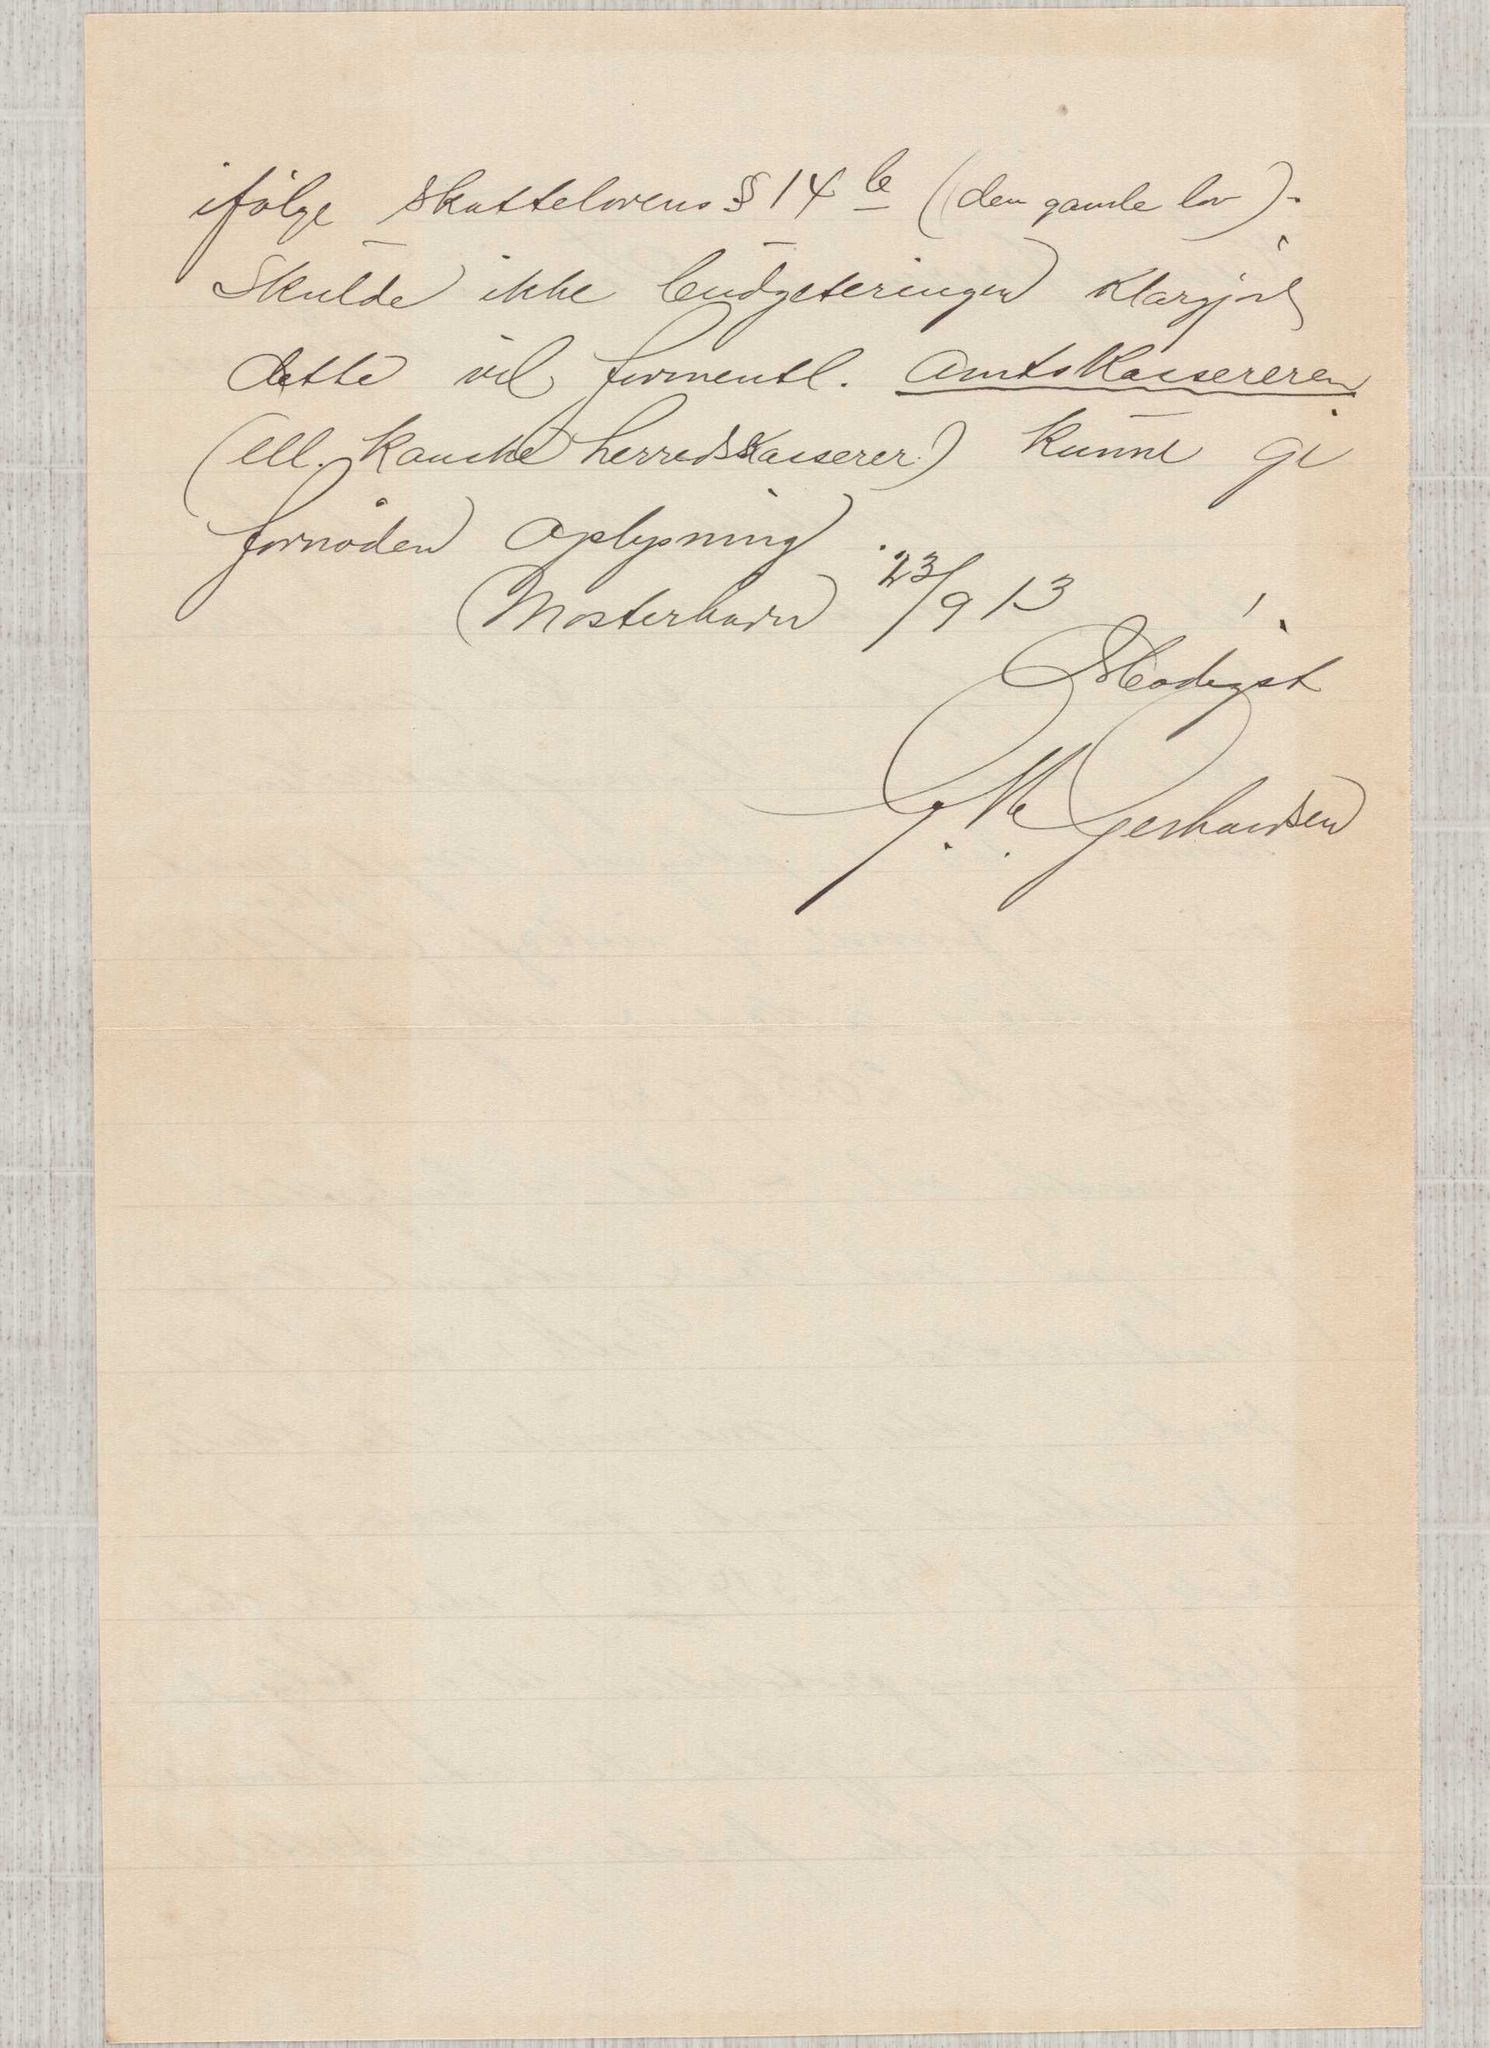 ifølge skattelovens § 14 b (den gamle lov).
Skulde ikke budgeteringen klargjøre
dette vil formentl. amtskassereren
(ell. kanske herredskasserer) kunne gi
fornøden oplysning.
Mosterhavn 23/9 13
Ærbødigst
G. M. Gerhardsen